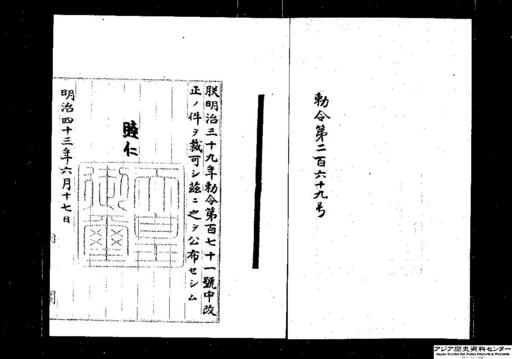 勅令第二百六十九号
朕明治三十九年勅令第百七十一號中改
正ノ件ヲ裁可シ茲ニ之ヲ公布セシム
睦仁
天皇
御璽
明治四十三年六月十七日
アジア歴史資料センター
Japan Center for Asian Historical Records